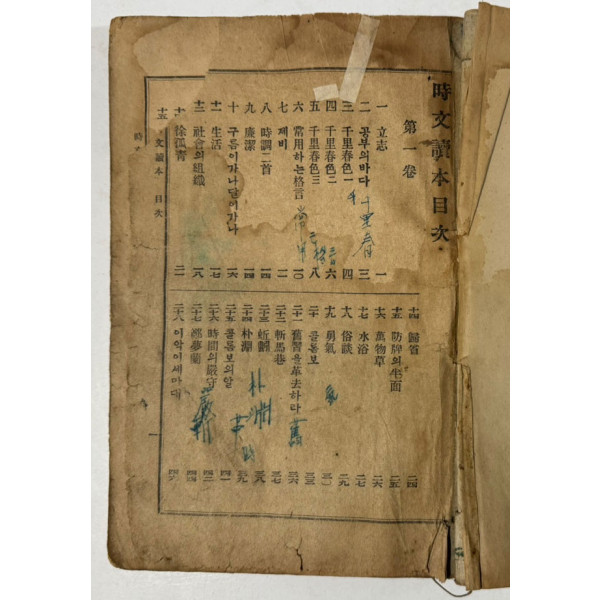 時文讀本目次
第一卷
一 立志 一
二 공부의바다 三
三 千里春色一 四
四 千里春色二 六
五 千里春色三 八
六 常用하는格言 一〇
七 제비 一一
八 時調二首 一四
九 廉潔 一四
十 구름이가나달이가나 一六
十一 生活 一七
十二 社會의組織 一八
徐孤靑 二一
千里春
常用
格言
十四 歸省 二四
十五 防牌의半面 二五
十六 萬物草 二六
十七 水浴 二七
十八 俗談 二九
十九 勇氣
二十 콜롬보 三三
二十一 舊習을革去하라 三六
二十二 斬馬巷 三七
二十三 蚯蚓 三八
二十四 朴淵 三九
二十五 콜롬보의알 四一
二十六 時間의嚴守 四三
二十七 鄭夢蘭 四四
二十八 이약이세마대 四六
朴淵
文讀本 目次
一